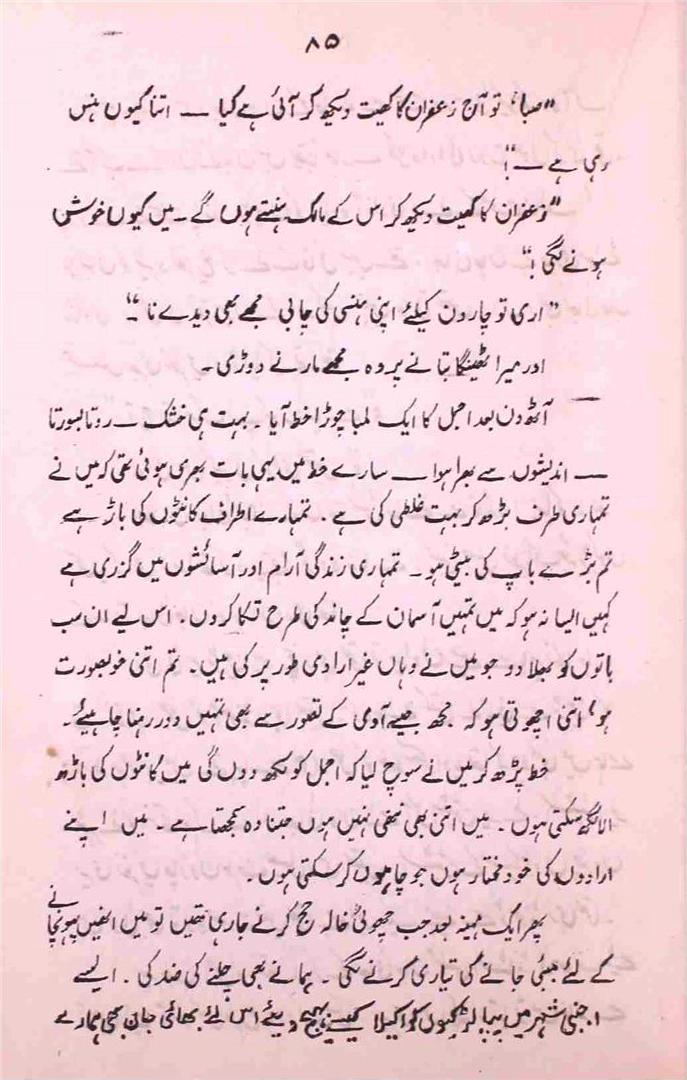 ۸۵
"صبا، تو آج زعفران کا کھیت دیکھ کر آئی ہے کیا — اتنا کیوں ہنس
رہی ہے —"!
"زعفران کا کھیت دیکھ کر اس کے مالک ہنستے ہوں گے۔ میں کیوں خوش
ہونے لگی!"
"اری تو چار دن کیلئے اپنی ہنسی کی چابی مجھے بھی دیدے نا"۔
اور میرا ٹھینگا بتانے پر وہ مجھے مارنے دوڑی۔
آٹھ دن بعد اجمل کا ایک لمبا چوڑا خط آیا۔ بہت ہی خشک — روتا بسورتا
— اندیشوں سے بھرا ہوا — سارے خط میں یہی بات بھری ہوئی تھی کہ میں نے
تمہاری طرف بڑھ کر بہت غلطی کی ہے۔ تمہارے اطراف کانٹوں کی باڑ ہے
تم بڑے باپ کی بیٹی ہو۔ تمہاری زندگی آرام اور آسائشوں میں گزری ہے
کہیں ایسا نہ ہو کہ میں تمہیں آسمان کے چاند کی طرح تکا کروں۔ اس لیے ان سب
باتوں کو بھلا دو جو میں نے وہاں غیر ارادی طور پر کی ہیں۔ تم اتنی خوبصورت
ہو، اتنی اچھوتی ہو کہ مجھ جیسے آدمی کے تصور سے بھی تمہیں دور رہنا چاہیئے۔
خط پڑھ کر میں نے سوچ لیا کہ اجمل کو لکھ دوں گی میں کانٹوں کی باڑھ
الانگھ سکتی ہوں۔ میں اتنی بھی ننھی نہیں ہوں جتنا وہ سمجھتا ہے۔ میں اپنے
ارادوں کی خود مختار ہوں جو چاہوں کر سکتی ہوں۔
پھر ایک مہینہ بعد جب چھوٹی خالہ حج کرنے جا رہی تھیں تو میں انھیں پہونچانے
کے لئے بمبئی جانے کی تیاری کرنے لگی۔ ہما نے بھی چلنے کی ضد کی۔ ایسے
اجنبی شہر میں پپا لڑکیوں کو اکیلا کیسے بھیج دیتے اس لئے بھائی جان بھی ہمارے